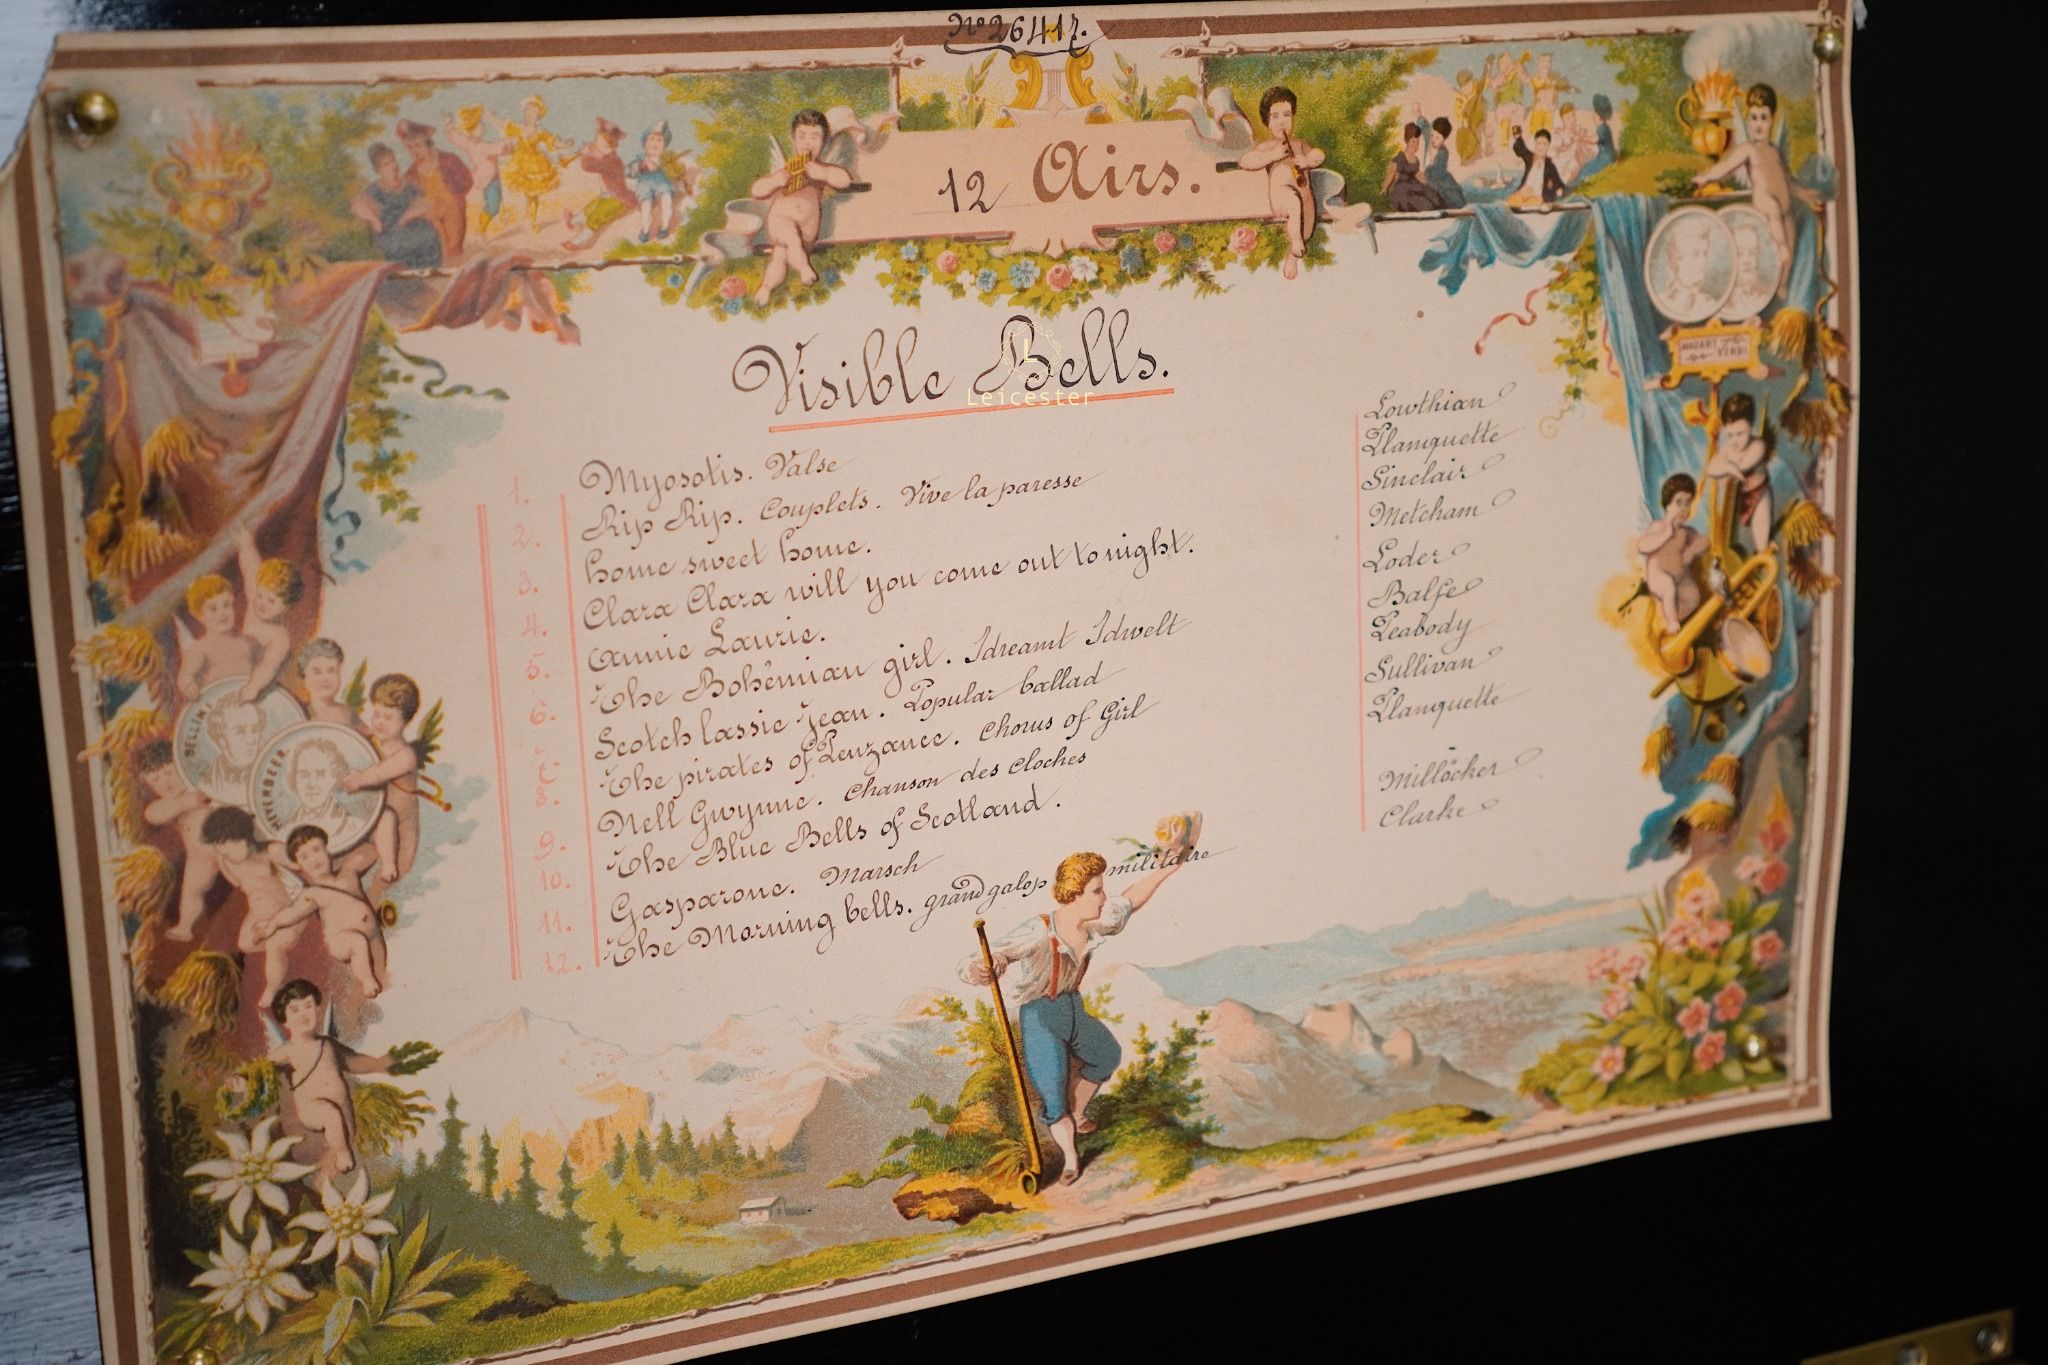 Nº 26417.
12 Airs.
Visible Bells.
Leicester
1. Myosotis. Valse Lowthian
2. Rip Rip. Couplets. Vive la paresse Planquette
3. Home sweet home. Sinclair
4. Clara Clara will you come out to night. Metcham
5. Annie Laurie. Loder
6. The Bohêmian girl. I dreamt I dwelt Balfe
7. Scotch lassie Jean. Popular ballad Peabody
8. The pirates of Penzance. Chorus of Girl Sullivan
9. Nell Gwynne. Chanson des Cloches Planquette
10. The Blue Bells of Scotland.
11. Gasparone. Marsch Millöcker
12. The Morning bells. grand galop militaire Clarke
MOZART VERDI
BELLINI
MEYERBEER